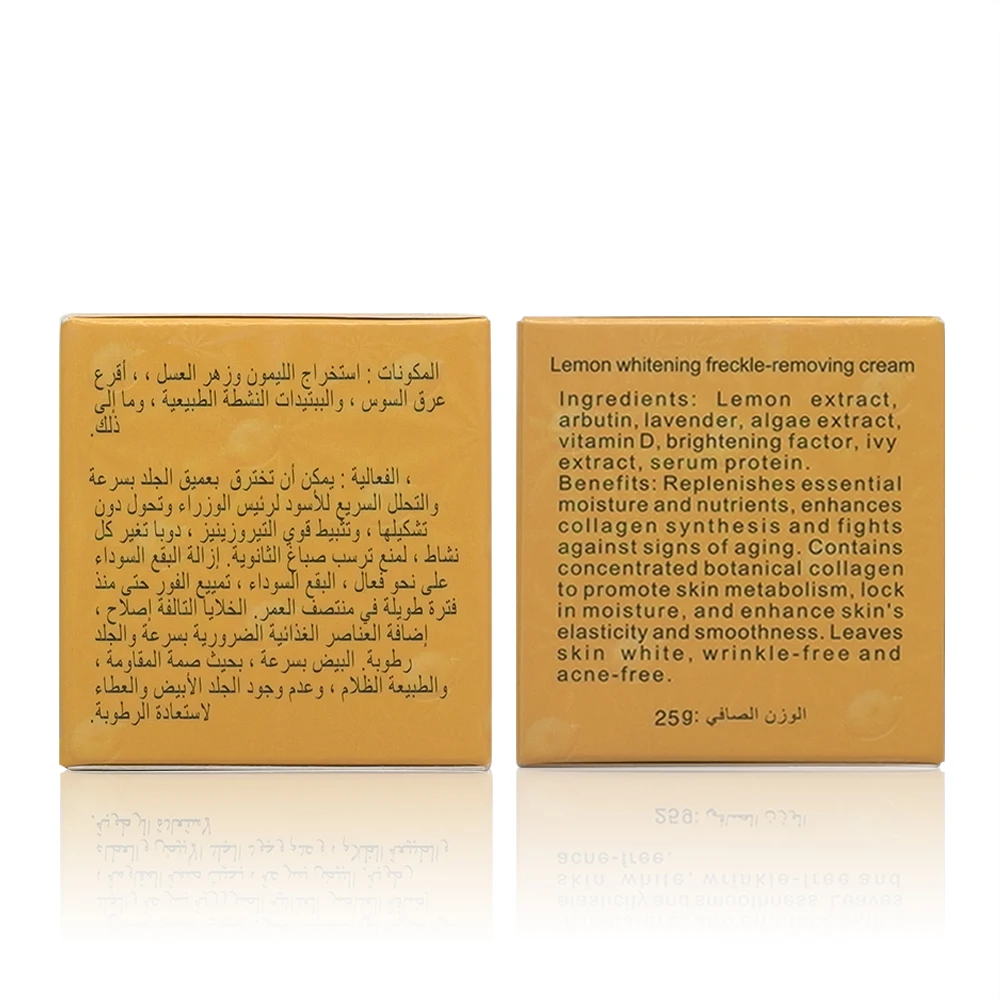 المكونات : استخراج الليمون وزهر العسل ، ، أقرع
عرق السوس ، والببتيدات النشطة الطبيعية ، وما إلى
ذلك.
، الفعالية : يمكن أن تخترق بعميق الجلد بسرعة
والتحلل السريع للأسود لرئيس الوزراء وتحول دون
تشكيلها ، وتثبيط قوي التيروزينيز ، دوبا تغير كل
نشاط ، لمنع ترسب صباغ الثانوية. إزالة البقع السوداء
على نحو فعال ، البقع السوداء ، تمييع الفور حتى منذ
فترة طويلة في منتصف العمر. الخلايا التالفة إصلاح ،
إضافة العناصر الغذائية الضرورية بسرعة والجلد
رطوبة. البيض بسرعة ، بحيث صمة المقاومة ،
والطبيعة الظلام ، وعدم وجود الجلد الأبيض والعطاء
لاستعادة الرطوبة.
Lemon whitening freckle-removing cream
Ingredients: Lemon extract,
arbutin, lavender, algae extract,
vitamin D, brightening factor, ivy
extract, serum protein.
Benefits: Replenishes essential
moisture and nutrients, enhances
collagen synthesis and fights
against signs of aging. Contains
concentrated botanical collagen
to promote skin metabolism, lock
in moisture, and enhance skin's
elasticity and smoothness. Leaves
skin white, wrinkle-free and
acne-free.
الوزن الصافي :25g